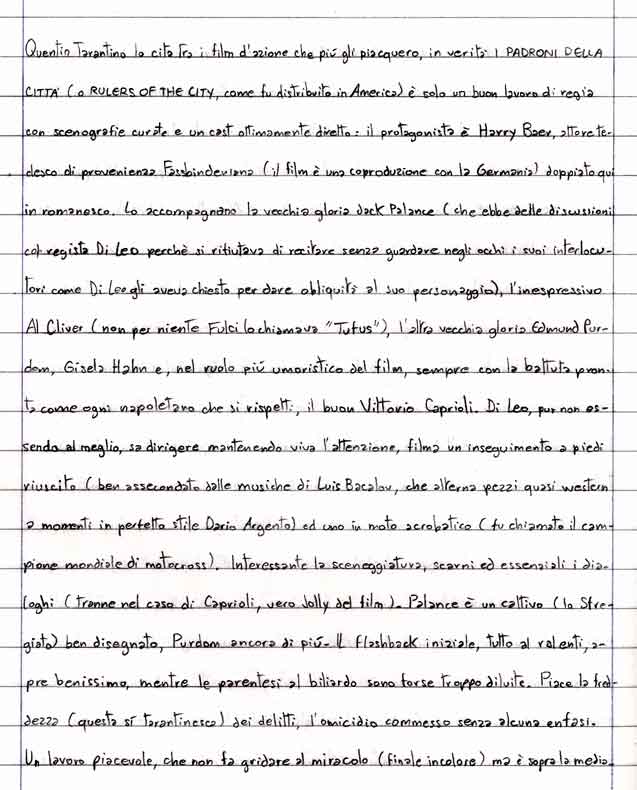 Quentin Tarantino lo cita fra i film d'azione che più gli piacquero, in verità I PADRONI DELLA
CITTÀ (o RULERS OF THE CITY, come fu distribuito in America) è solo un buon lavoro di regia
con scenografie curate e un cast ottimamente diretto: il protagonista è Harry Baer, attore te-
desco di provenienza Fassbinderiana (il film è una coproduzione con la Germania) doppiato qui
in romanesco. Lo accompagnano la vecchia gloria Jack Palance (che ebbe delle discussioni
col regista Di Leo perchè si rifiutava di recitare senza guardare negli occhi i suoi interlocu-
tori come Di Leo gli aveva chiesto per dare obliquità al suo personaggio), l'inespressivo
Al Cliver (non per niente Fulci lo chiamava "Tufus"), l'altra vecchia gloria Edmund Pur-
dom, Gisela Hahn e, nel ruolo più umoristico del film, sempre con la battuta pron-
ta come ogni napoletano che si rispetti, il buon Vittorio Caprioli. Di Leo, pur non es-
sendo al meglio, sa dirigere mantenendo viva l'attenzione, filma un inseguimento a piedi
riuscito (ben assecondato dalle musiche di Luis Bacalov, che alterna pezzi quasi western
a momenti in perfetto stile Dario Argento) ed uno in moto acrobatico (fu chiamato il cam-
pione mondiale di motocross). Interessante la sceneggiatura, scarni ed essenziali i dia-
loghi (tranne nel caso di Caprioli, vero Jolly del film). Palance è un cattivo (lo Sfre-
giato) ben disegnato, Purdom ancora di più. Il flashback iniziale, tutto al ralenti, a-
pre benissimo, mentre le parentesi al biliardo sono forse troppo diluite. Piace la fred-
dezza (questa sì tarantinesca) dei delitti, l'omicidio commesso senza alcuna enfasi.
Un lavoro piacevole, che non fa gridare al miracolo (finale incolore) ma è sopra la media.